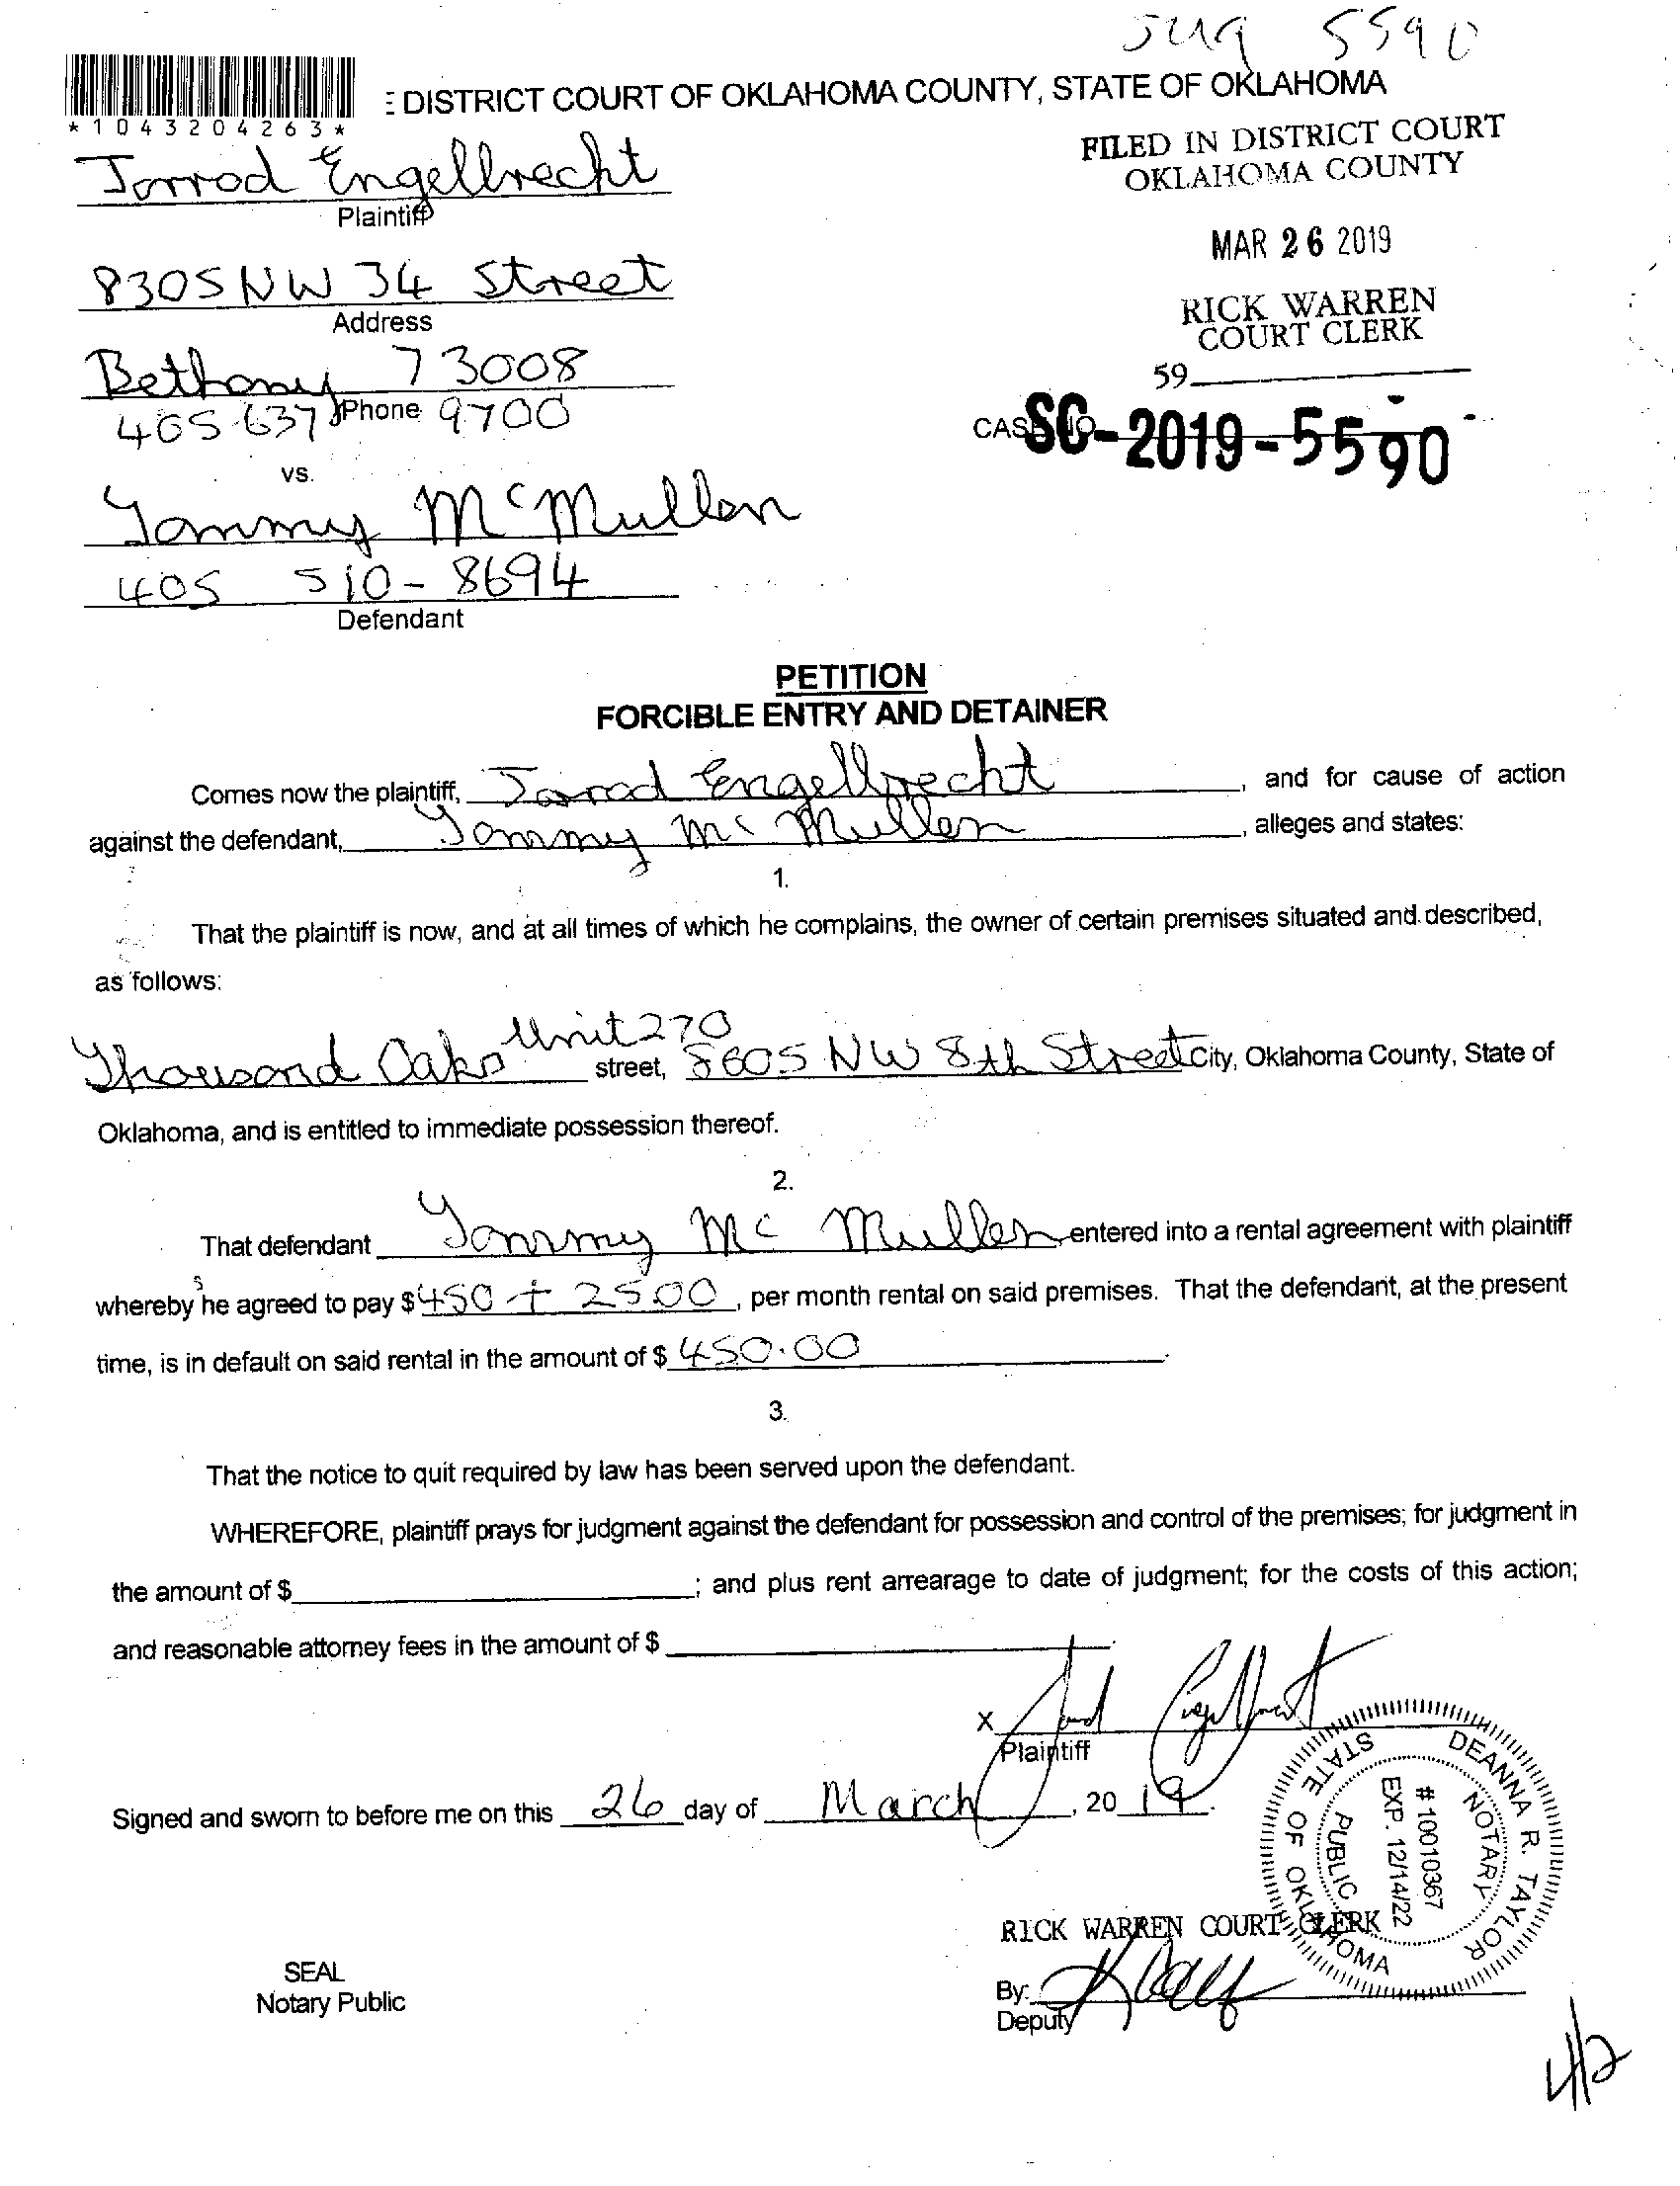 SC19 5590
E DISTRICT COURT OF OKLAHOMA COUNTY, STATE OF OKLAHOMA
*1043204263*
FILED IN DISTRICT COURT
OKLAHOMA COUNTY
Jarrod Engelbrecht
Plaintiff
MAR 26 2019
8305 NW 34 Street
Address
RICK WARREN
COURT CLERK
Bethany 73008
59
405 637 Phone 9700
CASE NO SC-2019-5590
vs.
Tommy McMullen
405 510-8694
Defendant
PETITION
FORCIBLE ENTRY AND DETAINER
Comes now the plaintiff, Jarrod Engelbrecht, and for cause of action
against the defendant, Tommy Mc Mullen, alleges and states:
1.
That the plaintiff is now, and at all times of which he complains, the owner of certain premises situated and described,
as follows:
Thousand Oaks Unit 270 street, 8605 NW 8th Street City, Oklahoma County, State of
Oklahoma, and is entitled to immediate possession thereof.
2.
That defendant Tommy Mc Mullen entered into a rental agreement with plaintiff
whereby she agreed to pay $450 + 25.00, per month rental on said premises. That the defendant, at the present
time, is in default on said rental in the amount of $ 450.00.
3.
That the notice to quit required by law has been served upon the defendant.
WHEREFORE, plaintiff prays for judgment against the defendant for possession and control of the premises; for judgment in
the amount of $; and plus rent arrearage to date of judgment; for the costs of this action;
and reasonable attorney fees in the amount of $
X Jarrod Engelbrecht
Plaintiff
Signed and sworn to before me on this 26 day of March, 2019.
DEANNA R. TAYLOR
NOTARY PUBLIC
# 10010367
EXP. 12/14/22
STATE OF OKLAHOMA
RICK WARREN COURT CLERK
SEAL
Notary Public
By:
Deputy
4/2